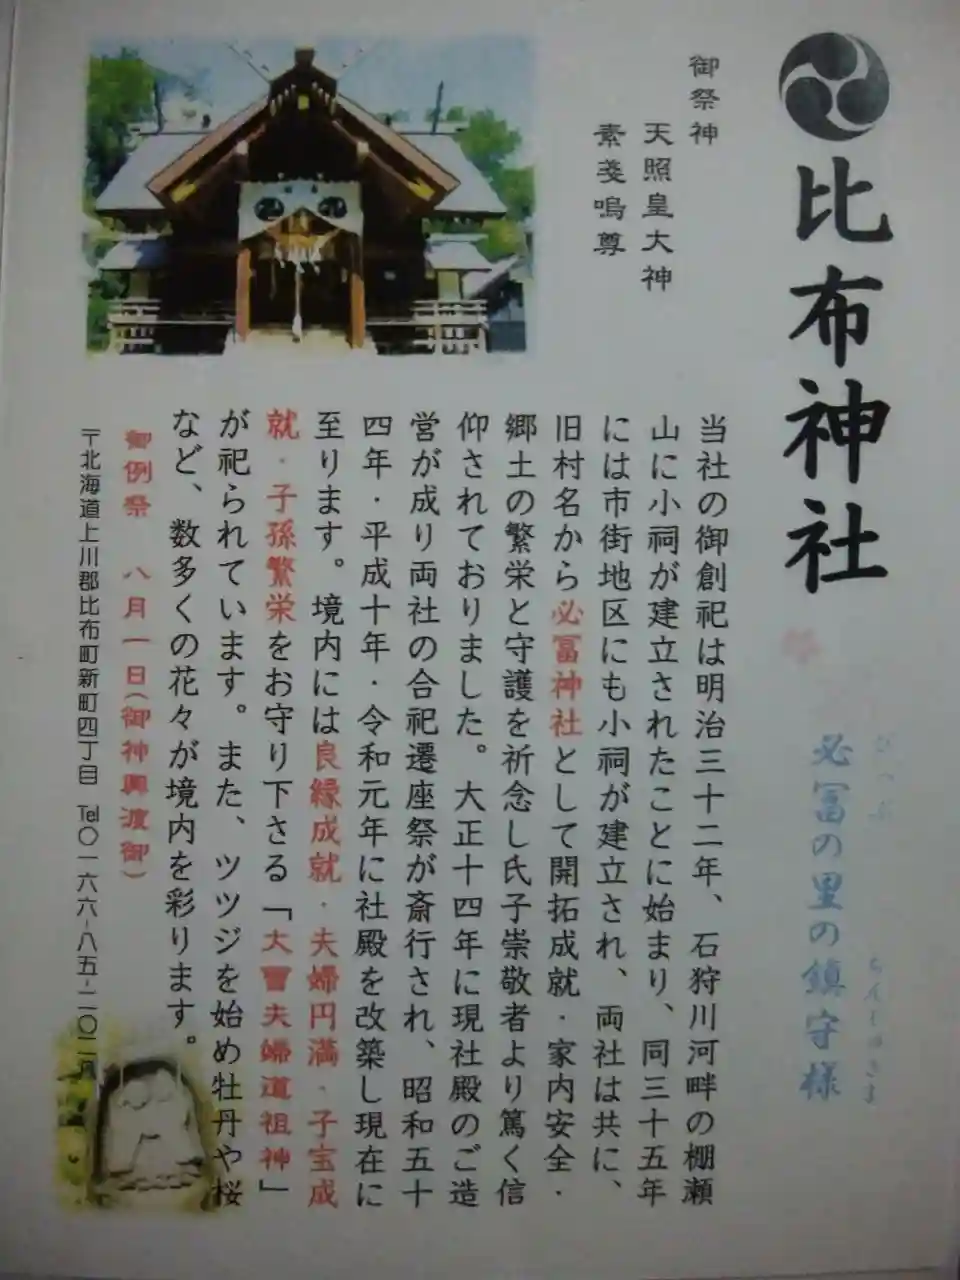 比布神社
必冨の里の鎮守様
御祭神
天照皇大神
素戔嗚尊
当社の御創祀は明治三十二年、石狩川河畔の棚瀬
山に小祠が建立されたことに始まり、同三十五年
には市街地区にも小祠が建立され、両社は共に、
旧村名から必冨神社として開拓成就・家内安全・
郷土の繁栄と守護を祈念し氏子崇敬者より篤く信
仰されておりました。大正十四年に現社殿のご造
営が成り両社の合祀遷座祭が斎行され、昭和五十
四年・平成十年・令和元年に社殿を改築し現在に
至ります。境内には良縁成就・夫婦円満・子宝成
就・子孫繁栄をお守り下さる「大曽夫婦道祖神」
が祀られています。また、ツツジを始め牡丹や桜
など、数多くの花々が境内を彩ります。
御例祭 八月一日(御神輿渡御)
〒北海道上川郡比布町新町四丁目 Tel〇一六六-八五-二〇二